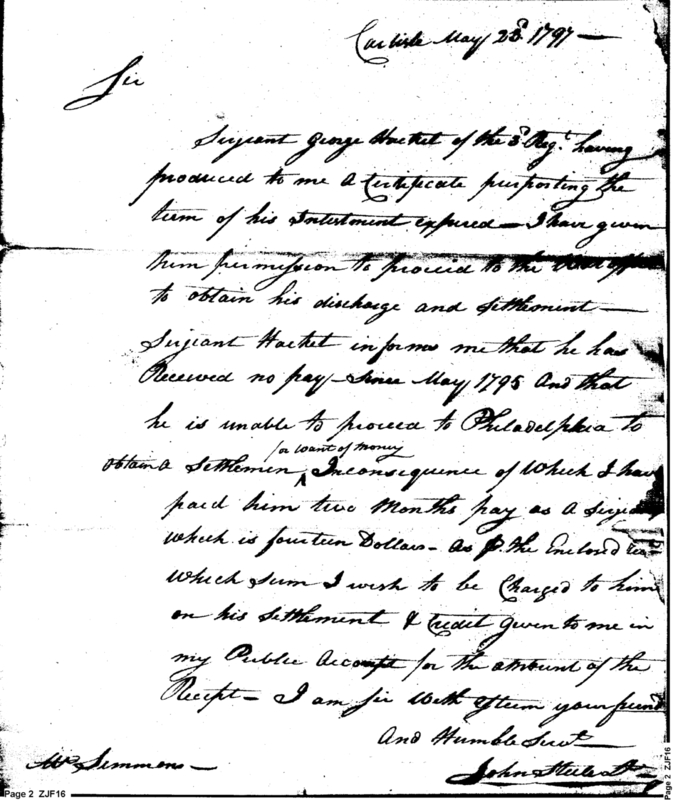 Carlisle May 28d 1797 —
Sir
Serjeant George Hacket of the 3d Regt. having
produced to me a Certificate purposting the
term of his Intestment expired — I have given
him permission to proceed to the War office
to obtain his discharge and settlement —
Serjeant Hacket informs me that he has
Received no pay — Since May 1795 And that
he is unable to proceed to Philadelphia to
for want of money
obtain a Settlemen ^ Inconsequence of Which I have
paid him two Months pay as a Serjeant
which is fourteen Dollars — As the Enclosed
which Sum I wish to be Charged to him
on his Settlement & Credit Given to me in
my Public Account for the amount of the
Receipt — I am Sir With Esteem your friend
And Humble Servt.
Mr Simmons —
John Steele
Page 2 ZJF16
Page 2 ZJF16